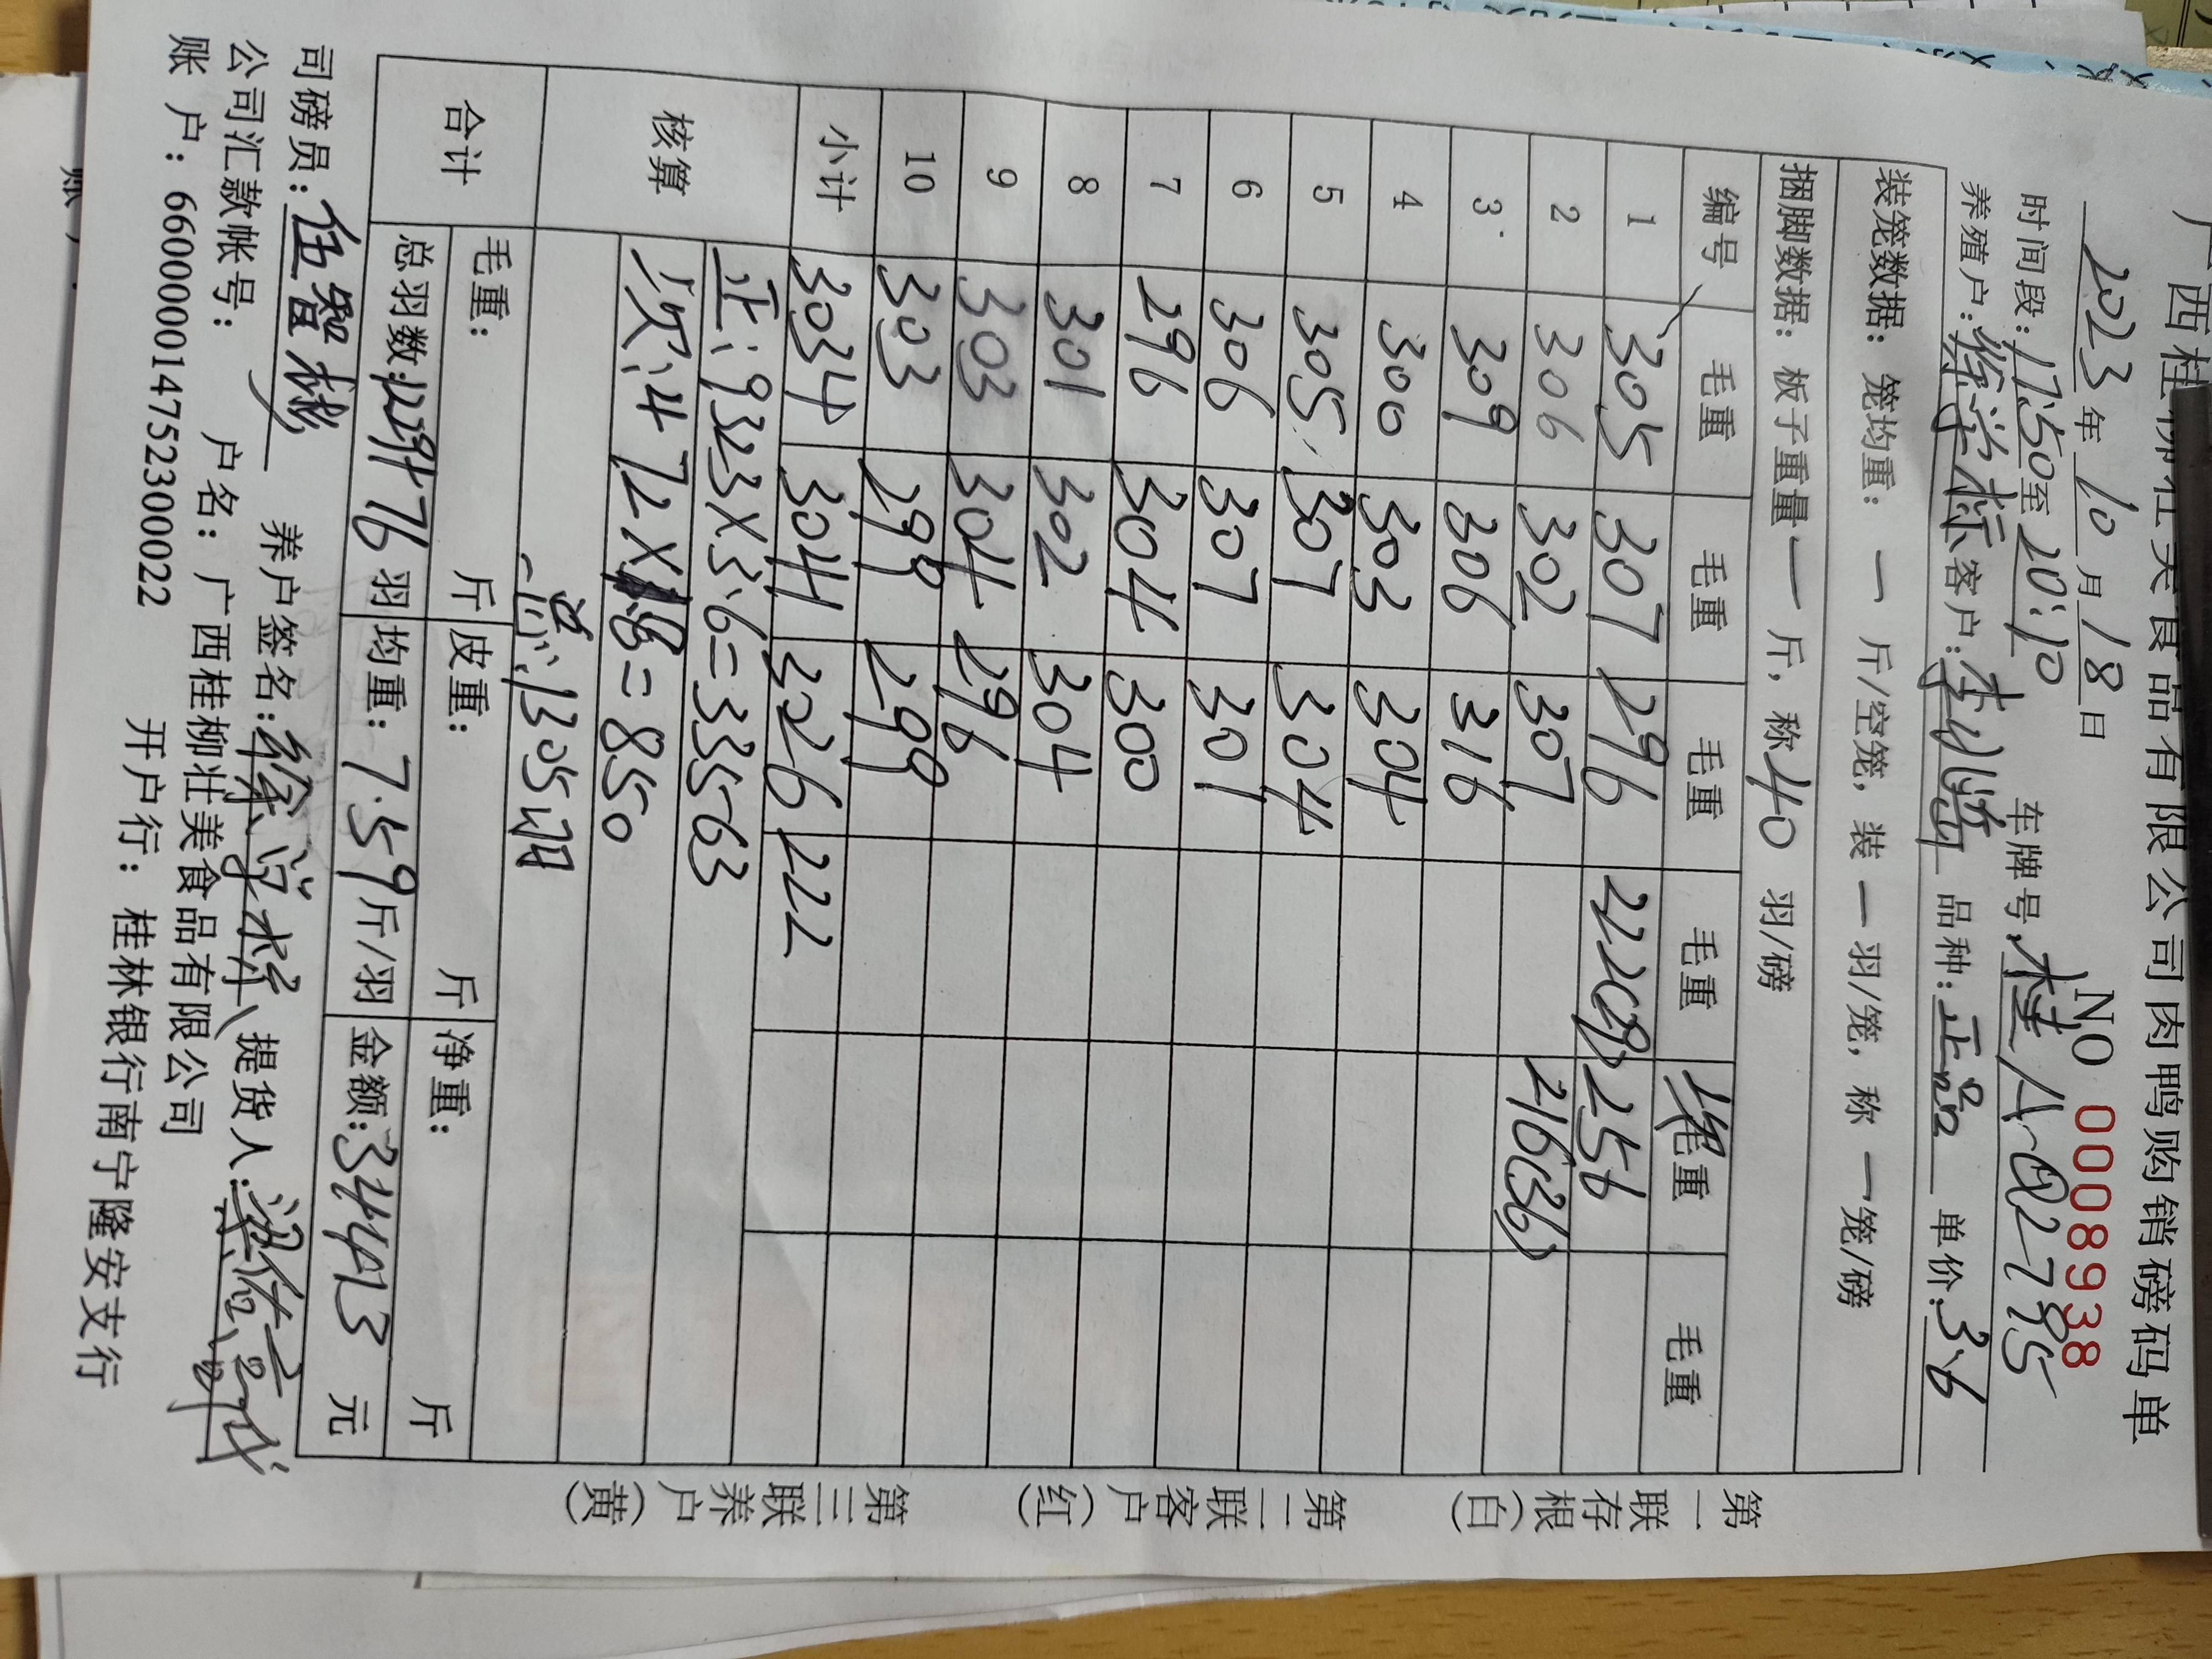 广西桂柳壮美食品有限公司肉鸭购销磅码单
NO 0008938
2023年10月18日
时间段:17:50至20:10 车牌号:桂A·Q2785
养殖户: 客户: 品种:正品 单价:3.6
装笼数据: 笼均重: 一 斤/空笼, 装 一 羽/笼, 称 一 笼/磅
捆脚数据: 板子重量 一 斤, 称 40 羽/磅
编号 毛重 毛重 毛重 毛重 毛重 毛重
1 305 307 296 222(28) 256
2 306 302 307 216(36)
3 309 306 316
4 300 303 304
5 305 307 304
6 306 307 301
7 296 304 300
8 301 302 304
9 303 304 296
10 303 299 299
小计 3034 3041 3226 222
核算 正:9323×3.6=33563
次:472×1.8=850
合计 毛重: 斤 皮重: 斤 净重: 斤
总羽数: 羽 均重:7.59斤/羽 金额:34413 元
司磅员:伍智 养户签名: 提货人:
公司汇款帐号: 户名:广西桂柳壮美食品有限公司
账 户:660000014752300022 开户行:桂林银行南宁隆安支行
第一联存根(白) 第二联客户(红) 第三联养户(黄)